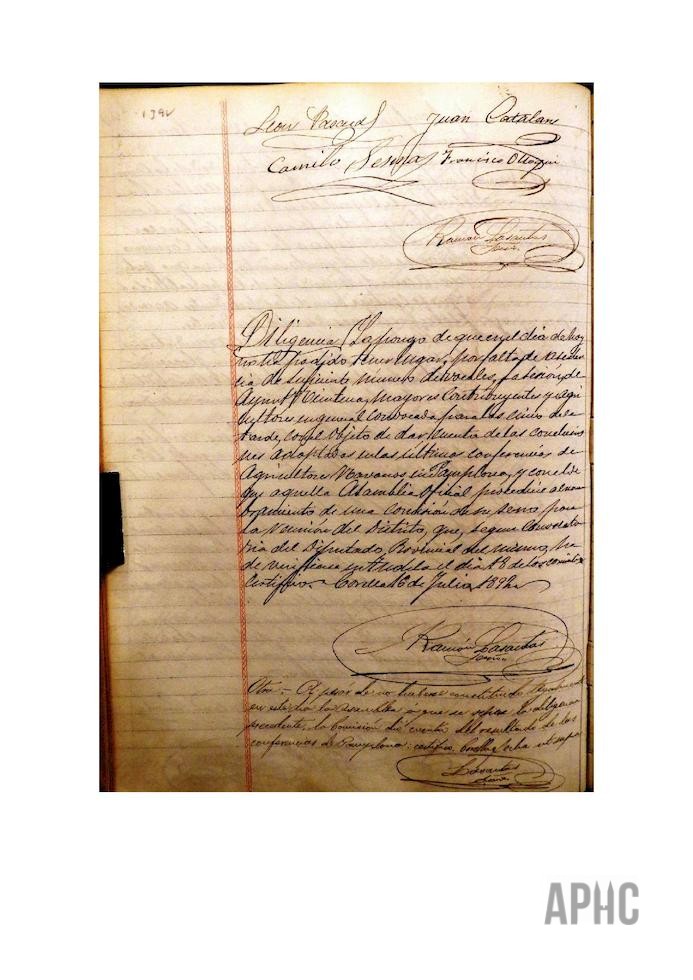 1892
Leon Pascual Juan Catalan
Camilo Sesma Francisco
Ramón Lasantas
Srio.
Diligencia / La pongo de que en el día de hoy
no ha podido tener lugar, por falta de asisten
cia de suficiente número de vocales, la sesión de
Aynt.º Veintena, mayores Contribuyentes y agri
cultores en general convocada para las cinco de la
tarde, con el objeto de dar cuenta de las conclusio
nes adoptadas en las últimas conferencias de
Agricultores Navarros en Pamplona, y con el de
que aquella Asamblea Oficial procediese al nom
bramiento de una Comisión de su seno para
la reunión del Distrito, que, según Convocato
ria del Diputado Provincial del mismo, ha
de verificarse en Tudela el día 18 de los corrientes
Certifico.- Corella 16 de Julio 1892
Ramón Lasantas
Srio.
Otra.- A pesar de no haberse constituido
en este día la asamblea a que se refiere la diligencia
precedente, la Comisión dió cuenta del resultado de las
conferencias de Pamplona: certifico. Corella fecha ut supra
Lasantas
Srio.
APHC